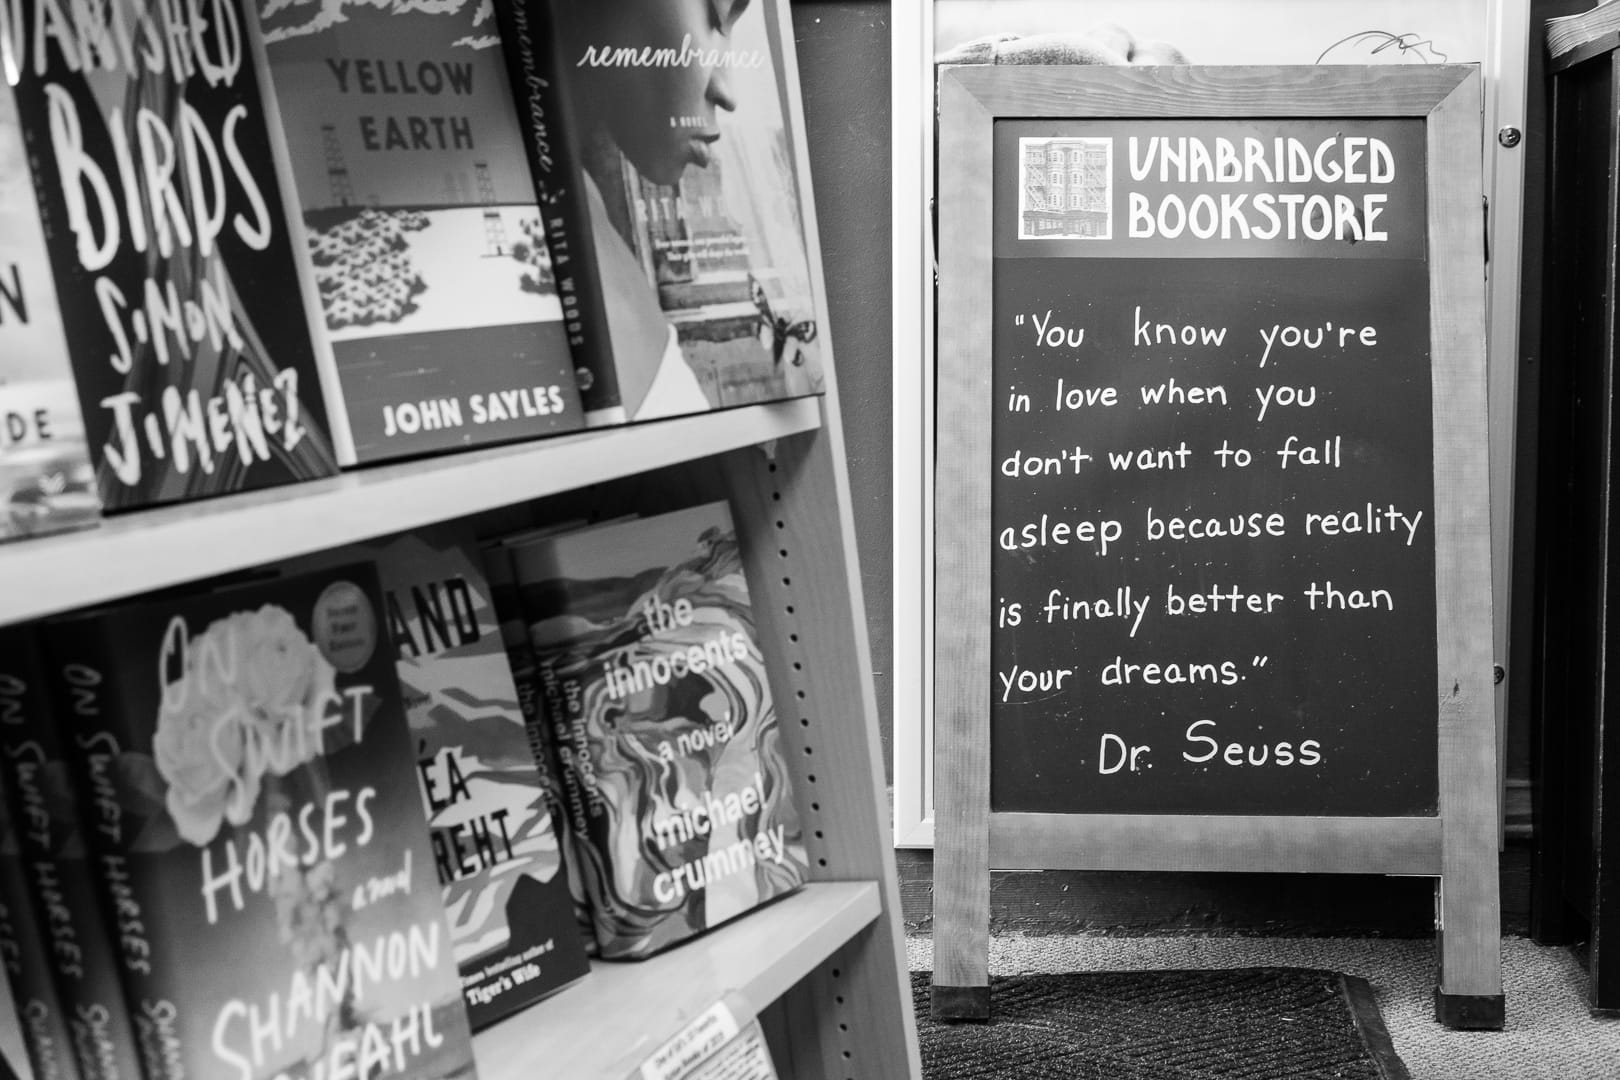 VANISHED
BIRDS
SIMON
JIMENEZ
YELLOW
EARTH
JOHN SAYLES
remembrance
RITA WOODS
remembrance
A NOVEL
RITA
N
DE
ON SWIFT HORSES
ON SWIFT HORSES
ON
SWIFT
HORSES
a novel
SHANNON
AND
ÉA
REHT
Tiger's Wife
the innocents
michael crummey
the innocents
a novel
michael
crummey
UNABRIDGED
BOOKSTORE
"You know you're
in love when you
don't want to fall
asleep because reality
is finally better than
your dreams."
Dr. Seuss